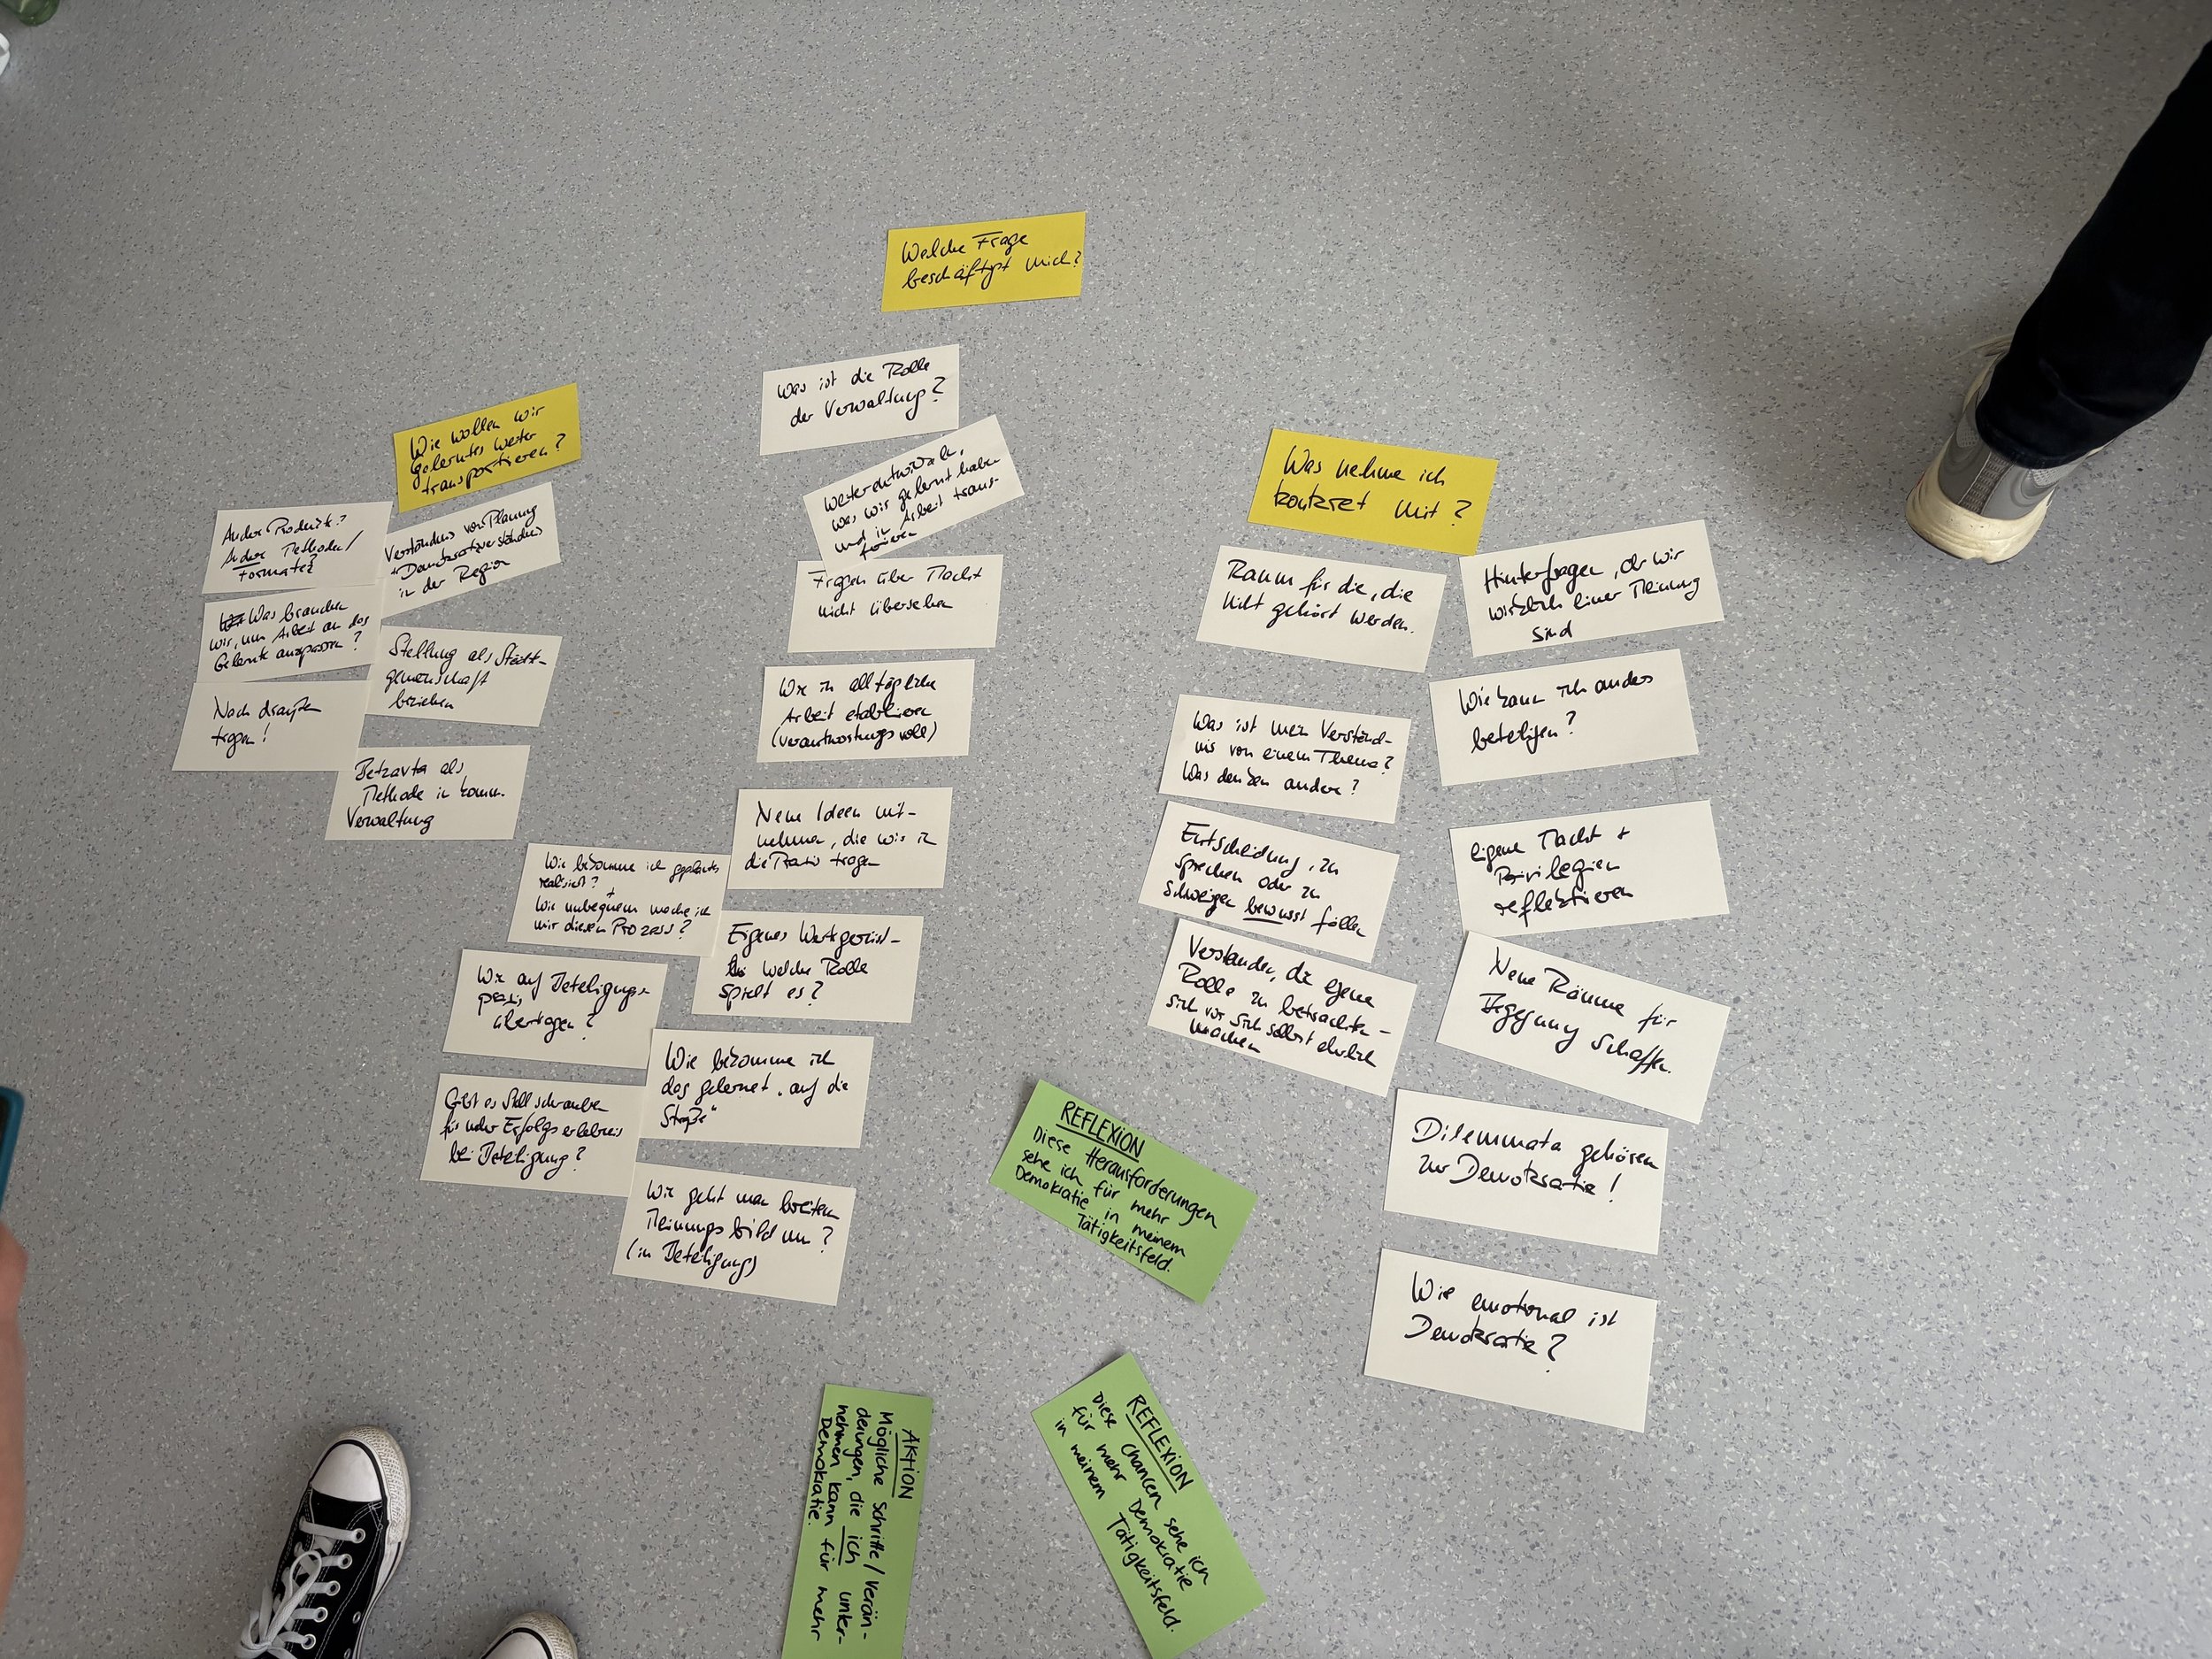 Welche Frage
beschäftigt mich?
Wie wollen wir
gelerntes weiter
transportieren?
Andere Produkte?
Andere Methoden/
Formate?
Verständnis von Planung
+ Demokratieverständnis
in der Region
Was brauchen
wir, um Arbeit an das
Gelernte anzupassen?
Stellung als Städte-
gemeinschaft
beziehen
Nach draußen
tragen!
Betzavta als
Methode in komm.
Verwaltung
Was ist die Rolle
der Verwaltung?
Weiterentwickeln,
was wir gelernt haben
und in Arbeit trans-
ferieren
Fragen über Macht
nicht übersehen
Wie in alltägliche
Arbeit etablieren
(verantwortungsvoll)
Neue Ideen mit-
nehmen, die wir in
die Praxis tragen
Wie bekomme ich geplantes
realisiert?
+
Wie unbequem mache ich
mir diesen Prozess?
Eigenes Wertgerüst-
welche Rolle
spielt es?
Wie auf Beteiligungs-
praxis
übertragen?
Wie bekomme ich
das gelernet „auf die
Straße"
Gibt es Stellschrauben
für mehr Erfolgserlebnis
bei Beteiligung?
Wie geht man breitem
Meinungsbild um?
(in Beteiligung)
Was nehme ich
konkret mit?
Raum für die, die
nicht gehört werden.
Hinterfragen, ob wir
wirklich einer Meinung
sind
Was ist mein Verständ-
nis von einem Thema?
Was denken andere?
Wie kann ich anders
beteiligen?
Entscheidung, zu
sprechen oder zu
schweigen bewusst fällen
eigene Macht +
Privilegien
reflektieren
Verstanden, die eigene
Rolle zu betrachten -
sich vor sich selbst ehrlich
machen
Neue Räume für
Begegnung schaffen.
Dilemmata gehören
zur Demokratie!
Wie emotional ist
Demokratie?
REFLEXION
Diese Herausforderungen
sehe ich für mehr
Demokratie in meinem
Tätigkeitsfeld.
REFLEXION
Diese Chancen sehe ich
für mehr Demokratie
in meinem Tätigkeitsfeld.
AKTION
Mögliche Schritte/Verän-
derungen, die ich unter-
nehmen kann für mehr
Demokratie.